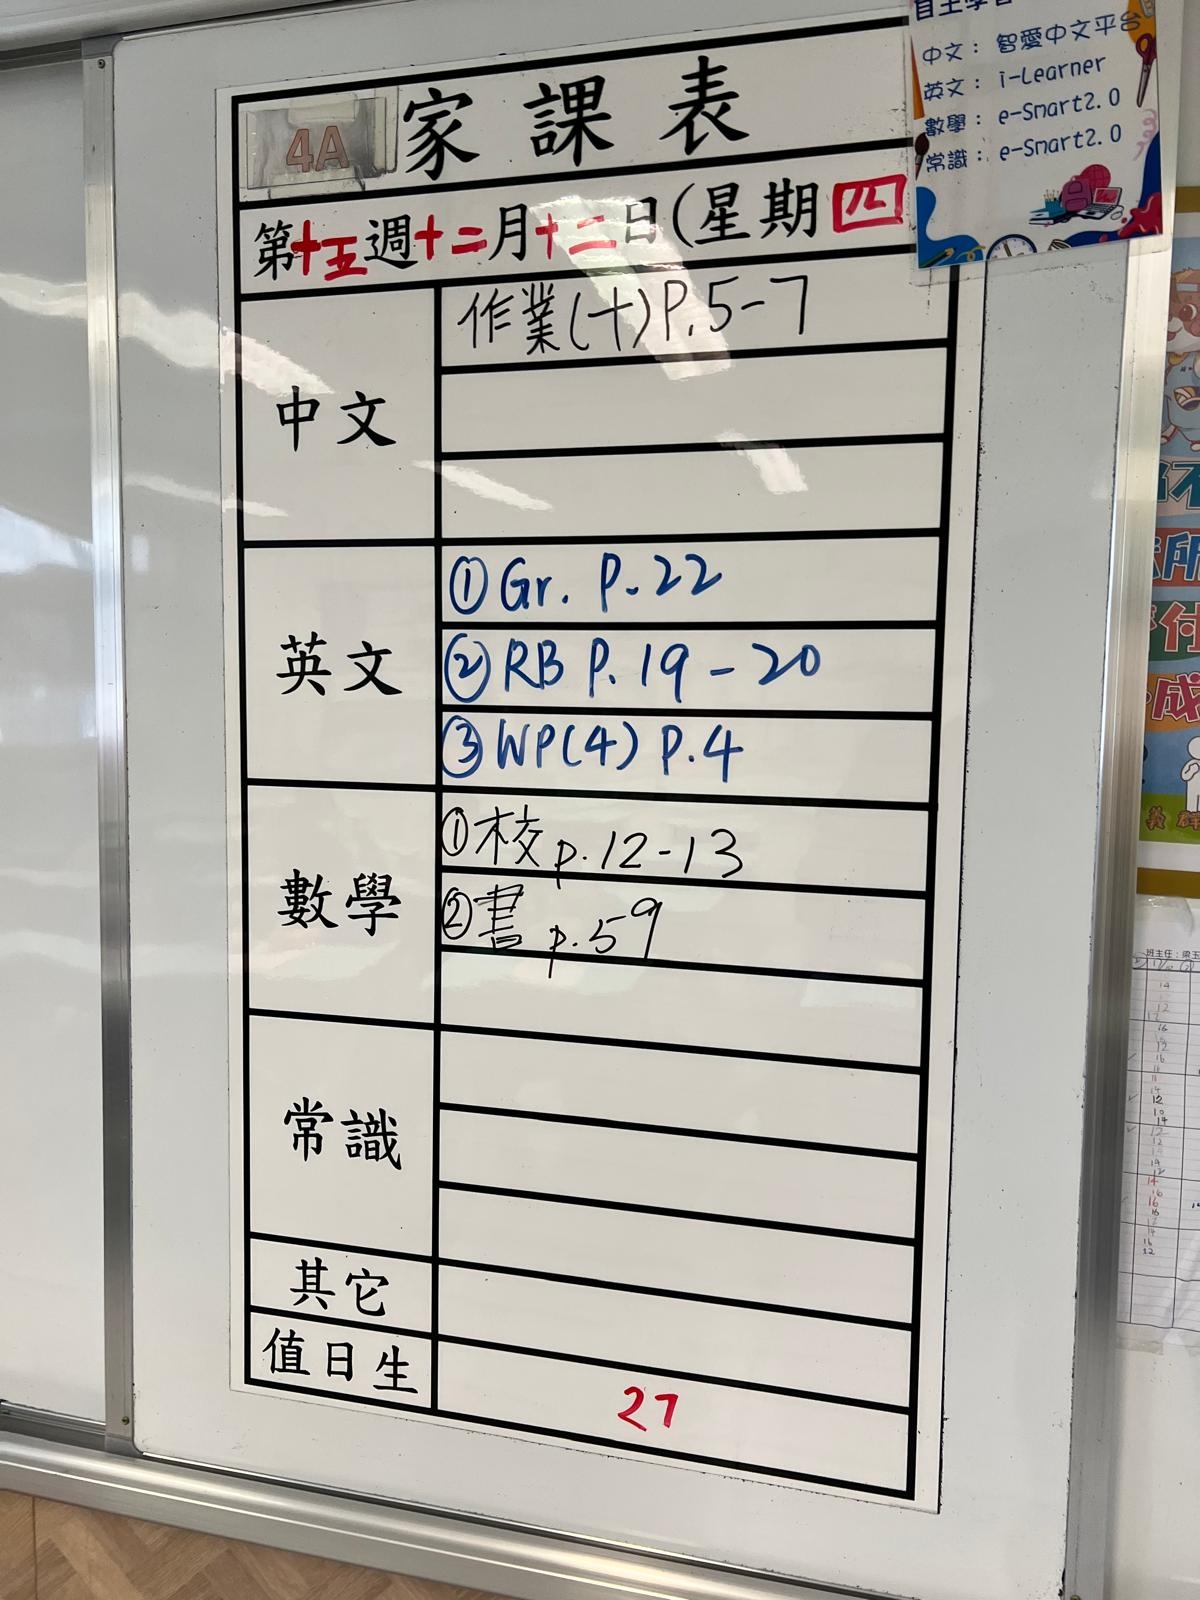 4A 家課表
第十五週十二月十二日(星期四
中文
作業(十)P.5-7
英文
①Gr. P.22
②RB P.19-20
③WP(4) P.4
數學
①校 p.12-13
②書 p.59
常識
其它
值日生
27
自主學習
中文： 智愛中文平台
英文： i-Learner
數學： e-Smart2.0
常識： e-Smart2.0
班主任：梁玉